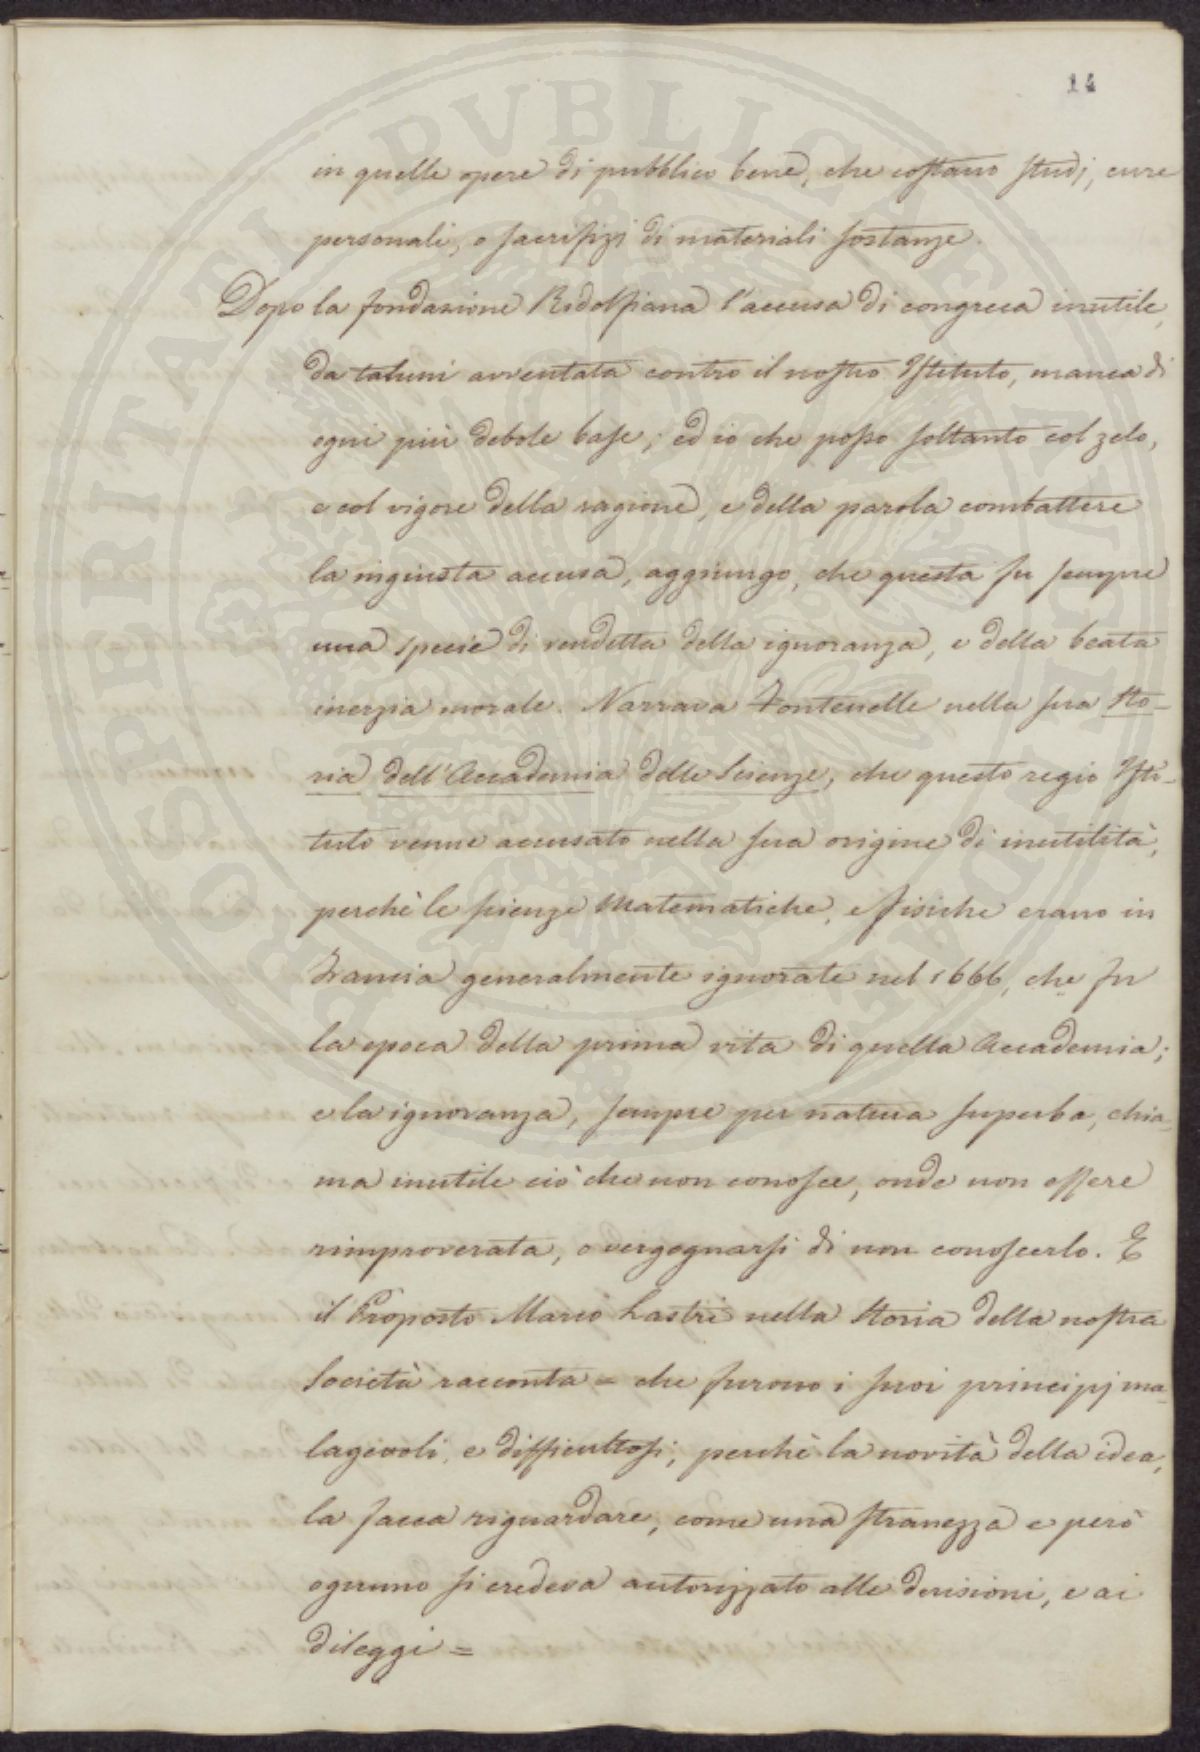 14
in quelle opere di pubblico bene, che costano studj, cure
personali, o sacrifizj di materiali sostanze.
Dopo la fondazione Ridolfiana l'accusa di congrega inutile,
da taluni avventata contro il nostro Istituto, manca di
ogni più debole base; ed io che posso soltanto col zelo,
e col vigore della ragione, e della parola combattere
la ingiusta accusa, aggiungo, che questa fu sempre
una specie di vendetta della ignoranza, e della beata
inerzia morale. Narrava Fontenelle nella sua Sto-
ria dell'Accademia delle Scienze, che questo regio Isti-
tuto venne accusato nella sua origine di inutilità,
perchè le scienze Matematiche, e fisiche erano in
Francia generalmente ignorate nel 1666, che fu
la epoca della prima vita di quella Accademia;
e la ignoranza, sempre per natura superba, chia-
ma inutile ciò che non conosce, onde non essere
rimproverata, o vergognarsi di non conoscerlo. E
il Proposto Marco Lastri nella Storia della nostra
Società racconta = che furono i suoi principj ma-
lagevoli, e difficultosi; perchè la novità della idea,
la facea riguardare, come una stranezza e però
ognuno si credeva autorizzato alle derisioni, e ai
dileggi =
PROSPERITATI PVBLICAE